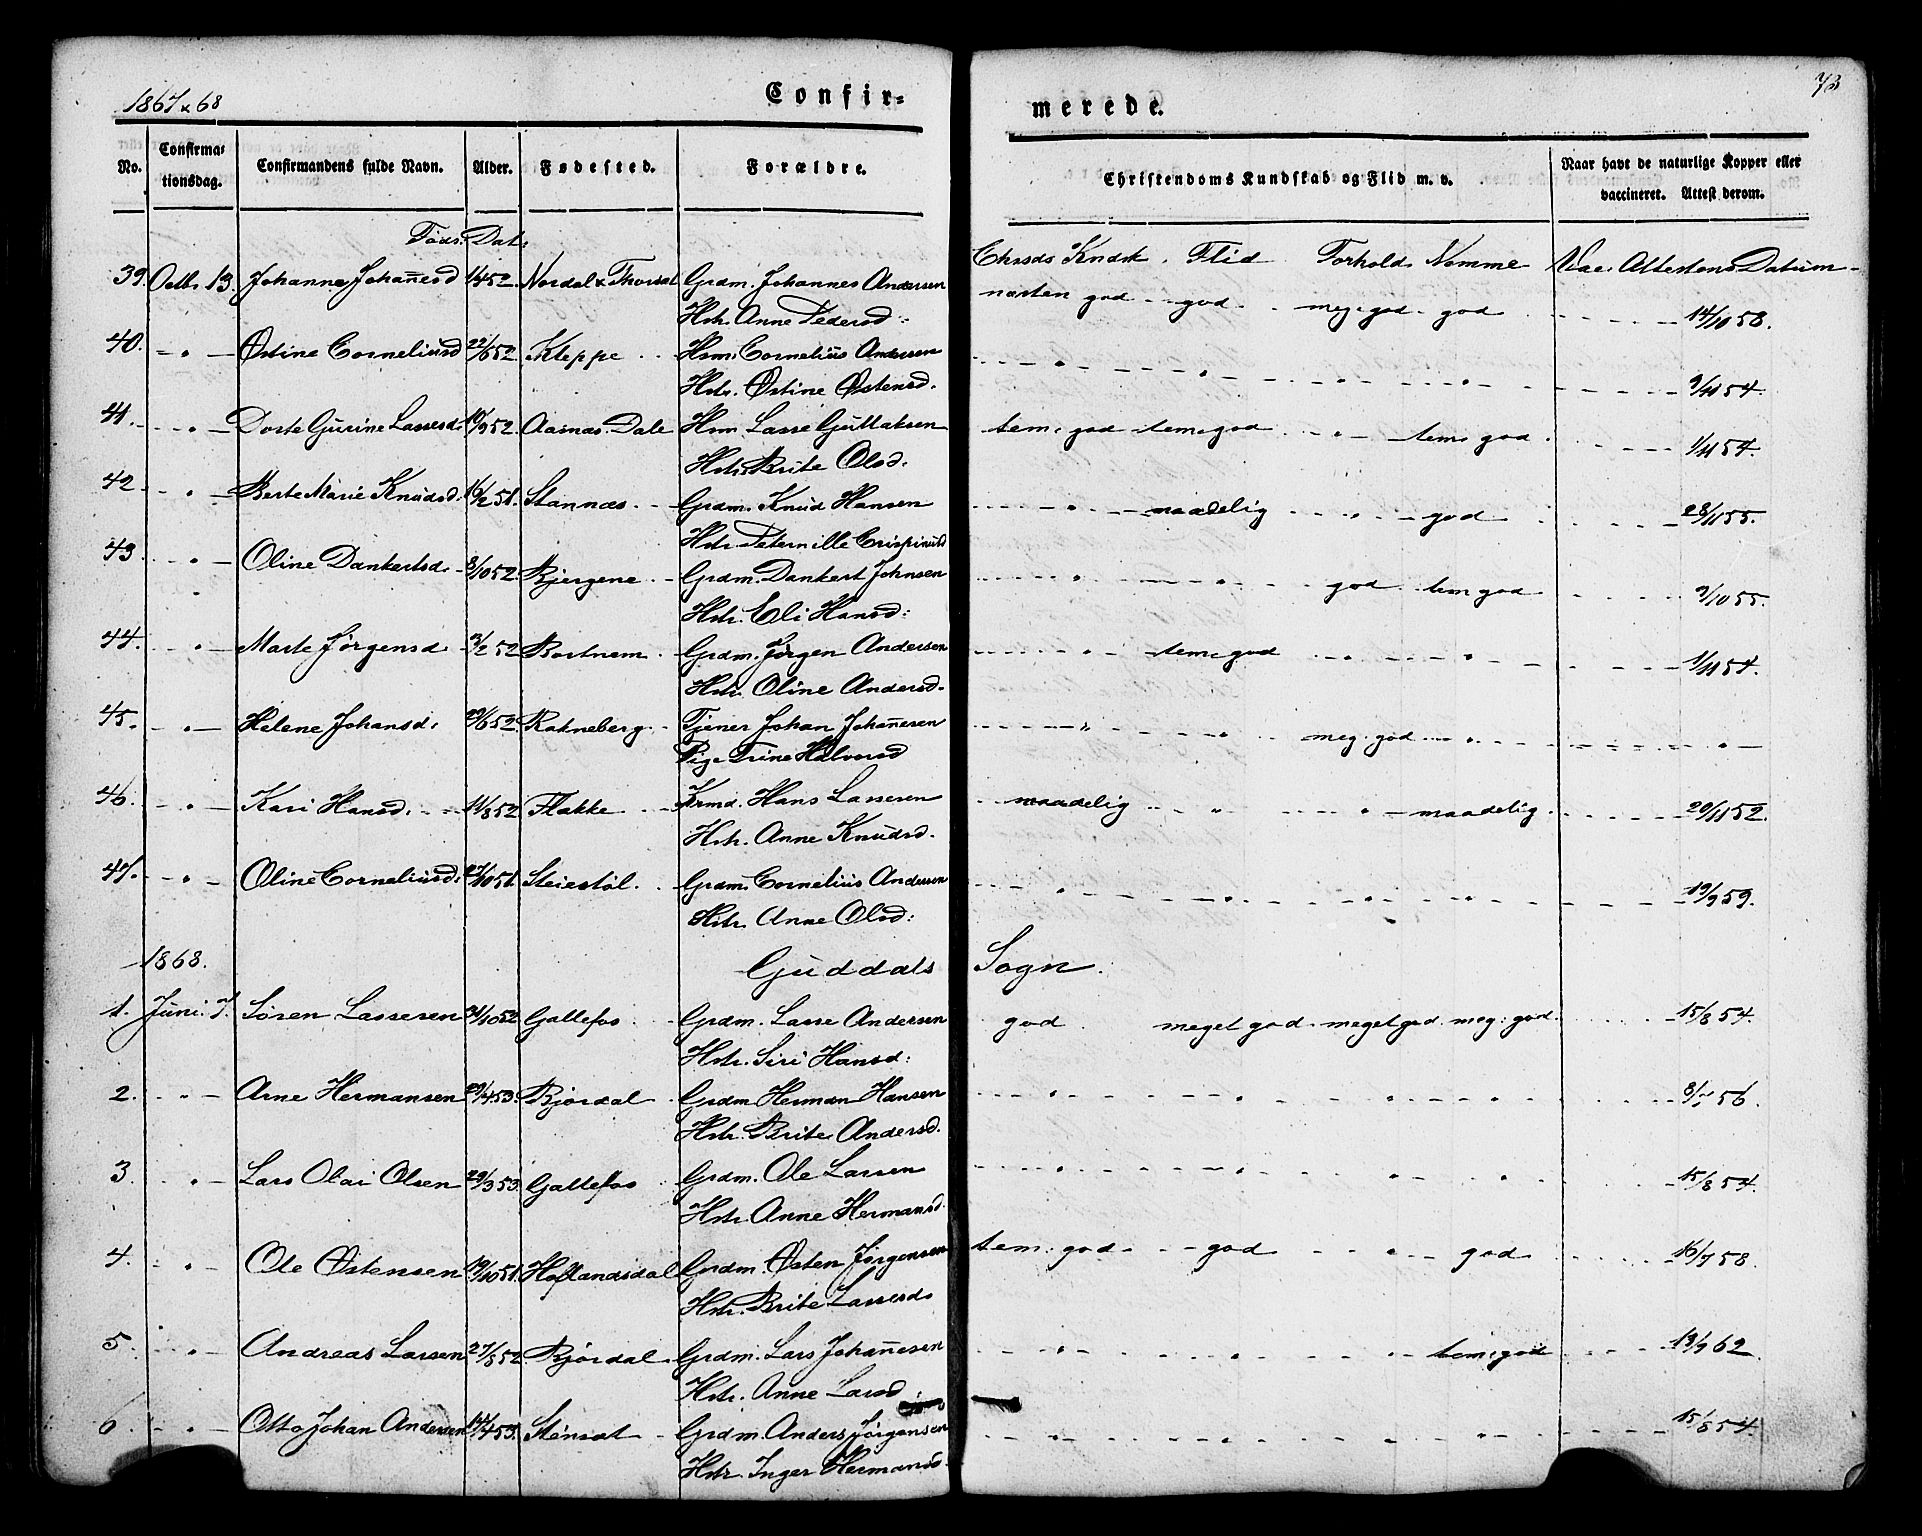 1867 & 68
Confir-
merede.
73
No.
Confirma-
tionsdag.
Confirmandens fulde Navn.
Alder.
Fødested.
Forældre.
Christendoms Kundskab og Flid m. v.
Naar havt de naturlige Kopper eller
vaccineret. Attest derom.
Føds. Dat:
Chrsds Kndsk. Flid Forhold Nemme Vac. Attestens Datum
39. Octb. 13. Johanne Johan̄esd 52. Nordal & Thorsat Grdm. Johannes Andersen næsten god god meg. god god 14/10 58.
Hstr. Anne Pedersd:
40. - " - Østine Corneliusd 22/6 52. Kleppe Hsm. Cornelius Andersen " " " 9/11 54.
Hstr. Østine Østensd.
41. - " - Dorte Gurine Lassesd. 10/9 52. Aasnæs Dale Hsm. Lasse Guttaksen tem. god tem. god " tem. god. 1/11 54.
Hstr. Brite Olsd.
42 - " - Berte Marie Knudsd. 16/2 51. Stannæs Grdm. Knud Hansen " maadelig " god 28/11 55.
Hstr. Peternille Crispinusd
43 - " - Oline Dankertsd. 8/10 52. Bjergene Grdm. Dankert Johnsen " " god tem god 9/10 55.
Hstr. Eli Hansd:
44. - " - Marte Jørgensd 3/2 52 Bortnem Grdm. Jørgen Andersen " tem. god " " 1/11 54.
Hstr. Oline Andersd.
45. - " - Helene Johansd. 29/6 52. Rakneberg Tjener Johan Johan̄esen " " meg. god " "
Pige Trine Halvorsd
46. - " - Kari Hansd. 11/8 52 Flakke Hans Lassesen maadelig " " maadelig 20/11 52.
Hstr. Anne Knudsd.
47. - " - Oline Corneliusd. 27/10 51. Steiestøl. Grdm. Cornelius Andersen " " " " 19/9 59.
Hstr. Anne Olsd:
1868. Guddals Sogn.
1. Juni 7. Søren Lassesen 31/10 52 Gallefos Grdm. Lasse Andersen god meget god meget god meg. god. 15/8 54.
Hstr. Siri Hansd:
2. - " - Arne Hermansen 29/4 53. Bjordal Grdm Herman Hansen " " " " 8/7 56.
Hstr. Brite Andersd.
3 - " - Lars Olai Olsen 29/3 53. Gallefos Grdm. Ole Larsen " " " " 15/8 54.
Hstr. Anne Hermansd.
4. - " - Ole Østensen 19/10 51. Hoflandsdal Grdm. Østen Jørgensen tem. god god " god 16/7 58.
Hstr. Brite Lassesd.
5. - " - Andreas Larsen 27/8 52 Bjørdal Grdm. Lars Johan̄esen " " " tem. god 19/7 62.
Hstr. Anne Larsd
6. - " - Otto Johan Andersen 14/4 53. Stensæt Grdm. Anders Jørgensen " " " " 15/8 54.
Hstr. Inger Hermansd.